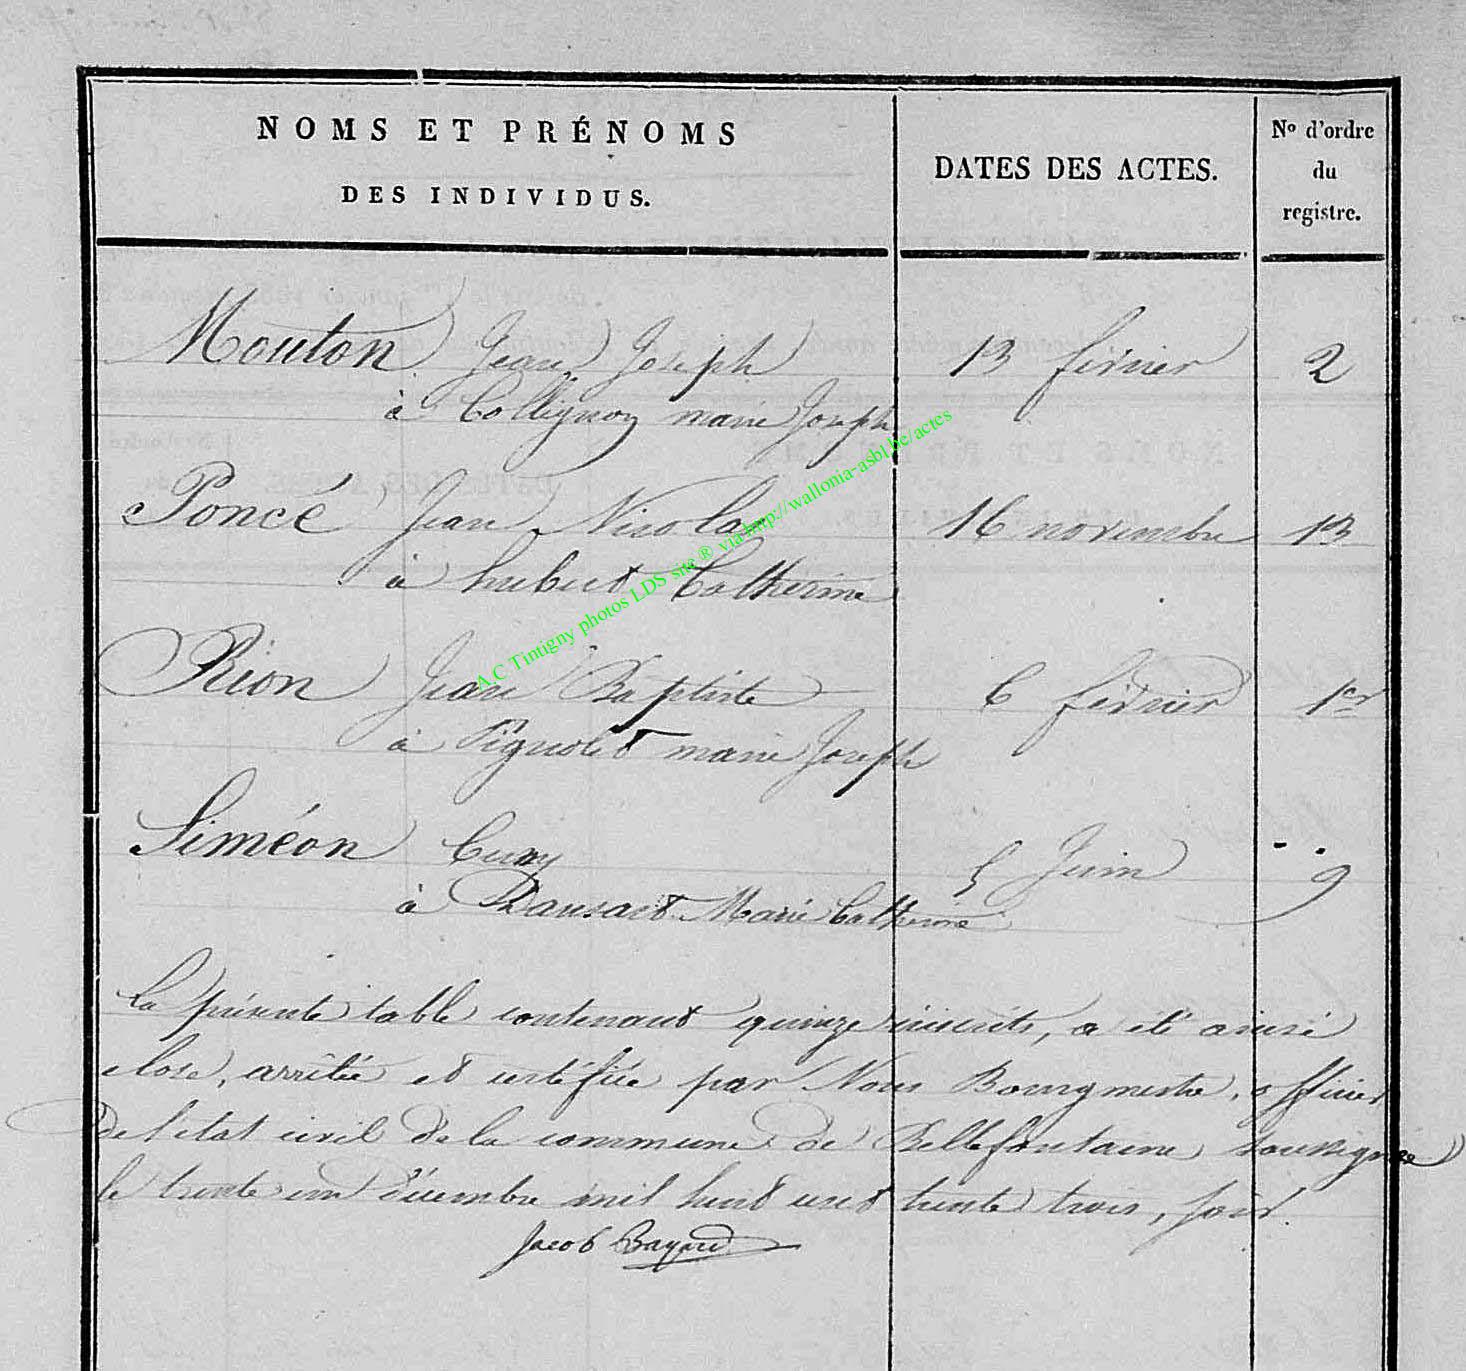 NOMS ET PRÉNOMS
DES INDIVIDUS.
DATES DES ACTES.
No d'ordre
du
registre.
Mouton Jean Joseph 13 février 2
à Collignon marie Joseph
Poncé Jean Nicolas 16 novembre 13
à hubert Catherine
Rion Jean Baptiste 6 février 1er
à Pignolet marie Joseph
Siméon Cuny 5 Juin 9
à Dausart Marie Catherine
la présente table contenant quinze inscrits, a été ainsi
close, arrêtée et certifiée par Nous Bourgmestre, officier
de l'etat civil de la commune de Bellefontaine soussigné
le trente un décembre mil huit cent trente trois,
Jacob Bayard
A.C Tintigny photos LDS site® via http://wallonia-asbl.be/actes